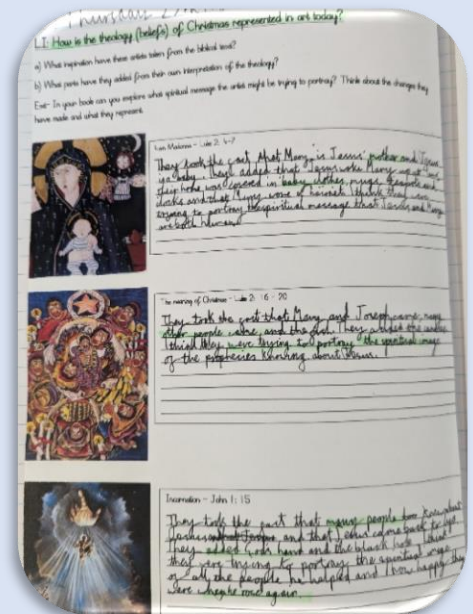 Thursday
L.I: How is the theology (beliefs) of Christmas represented in art today?
a) What inspiration have these artists taken from the biblical text?
b) What parts have they added from their own interpretation of the theology?
Ext- In your book can you explore what spiritual message the artist might be trying to portray? Think about the changes they
have made and what they represent.
Madonna - Luke 2: 6-7
They took the part that Mary is Jesus' mother and Jesus
is a baby. They added that Jesus woke Mary up at
their home was covered in baby clothes,
clocks and that Mary wore a hairnet. I think they were
trying to portray the spiritual message that Jesus and Mary
are both human.
The meaning of Christmas - Luke 2: 16 - 20
They took the part that Mary and Joseph came, many
other people came, and the They added the
I think they were trying to portray the spiritual
of the prophecies knowing about Jesus.
Incarnation - John 1: 15
They took the part that many people knew about
and that Jesus came back to
They added Gods hand and the black I think
they were trying to portray the spiritual
of all the people he helped and how happy they
were when he rose again.